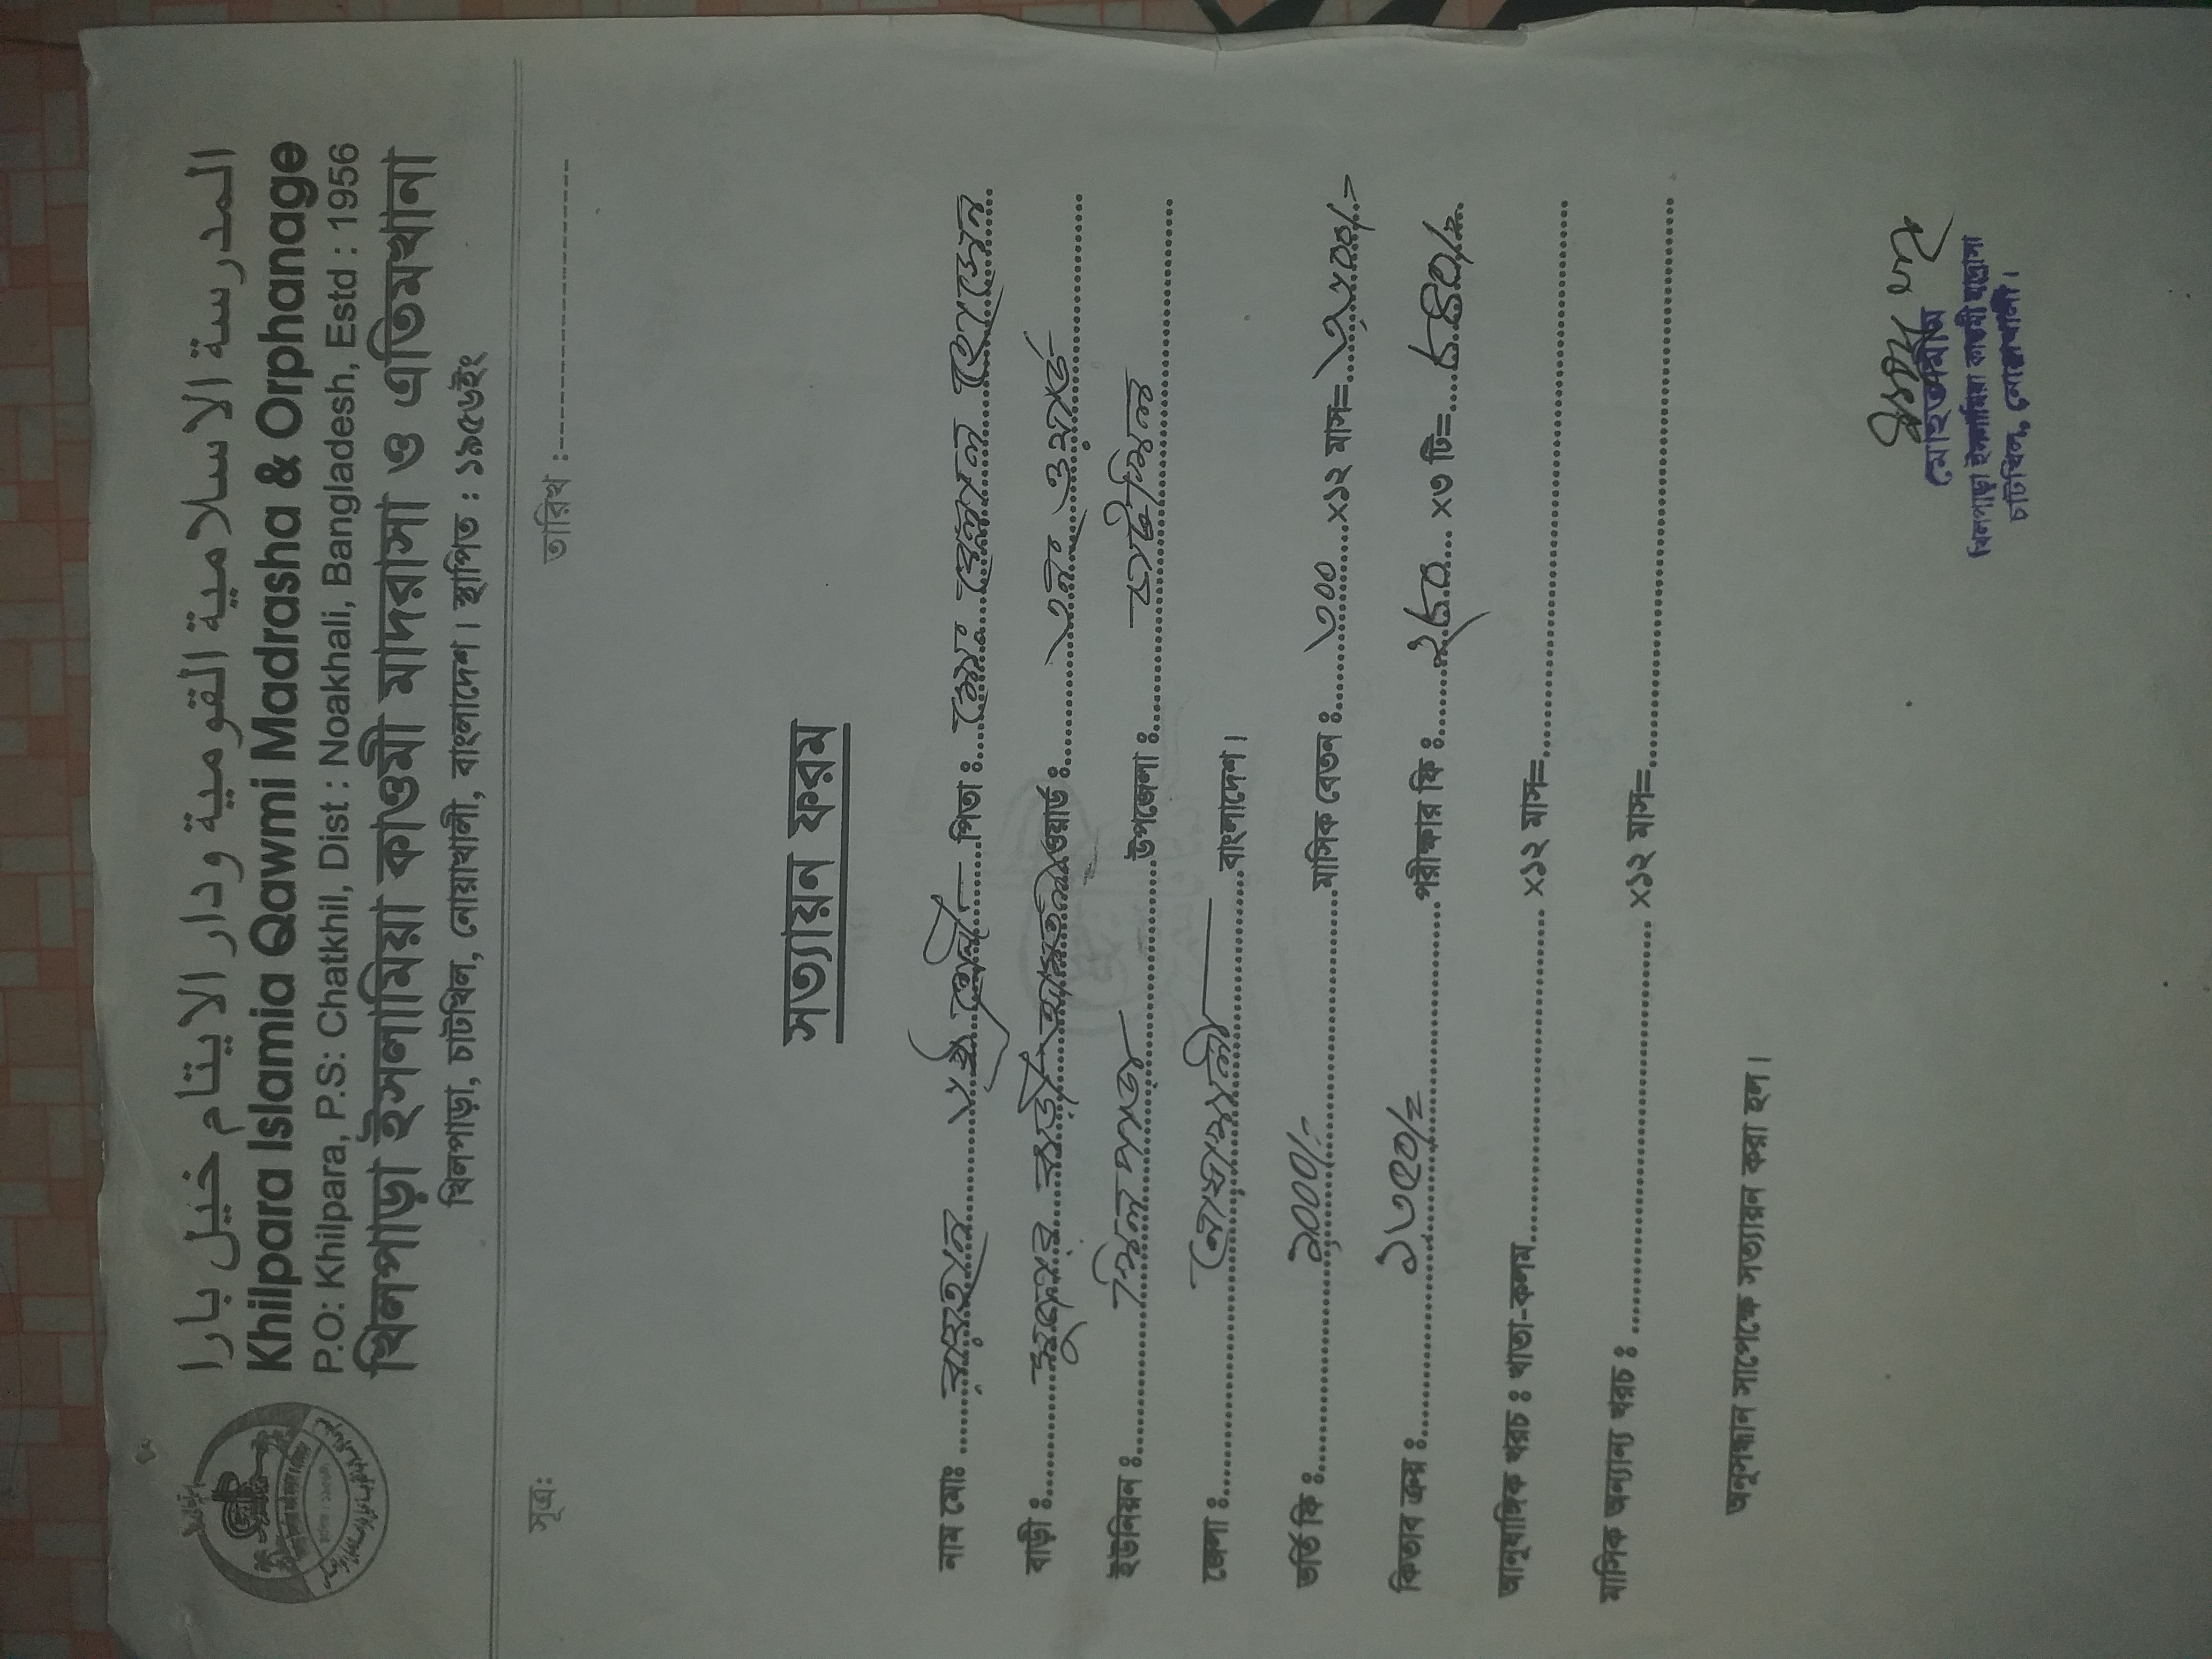 المدرسة الاسلامية القومية ودار الايتام خيل بارا
Khilpara Islamia Qawmi Madrasha & Orphanage
P.O: Khilpara, P.S: Chatkhil, Dist : Noakhali, Bangladesh, Estd : 1956
খিলপাড়া ইসলামিয়া কাওমী মাদরাসা ও এতিমখানা
খিলপাড়া, চাটখিল, নোয়াখালী, বাংলাদেশ। স্থাপিত : ১৯৫৬ইং
সূত্র: তারিখ :
সত্যায়ন ফরম
নাম মোঃ পিতা : মোঃ হোসেন
বাড়ী : ওয়ার্ড : ১নং ওয়ার্ড
ইউনিয়ন : খিলপাড়া উপজেলা : চাটখিল
জেলা : নোয়াখালী বাংলাদেশ।
ভর্তি ফি : ২০০০/= মাসিক বেতন : ১০০ ×১২ মাস= ১২০০/=
কিতাব ক্রয় : পরীক্ষার ফি : ২৮০ ×৩ টি= ৮৪০/=
আনুষাঙ্গিক খরচ : খাতা-কলম ×১২ মাস=
মাসিক অন্যান্য খরচ : ×১২ মাস=
অনুসন্ধান সাপেক্ষে সত্যায়ন করা হল।
মোহতামীম
খিলপাড়া ইসলামিয়া কাওমী মাদ্রাসা
চাটখিল, নোয়াখালী।